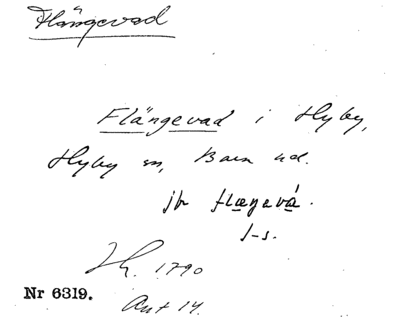 Flängevad
Flängevad i Hyby,
Hyby sn, Bara hd.
jb flægevá.
J-s.
Jh. 1790
Nr 6319.
Ant 14.